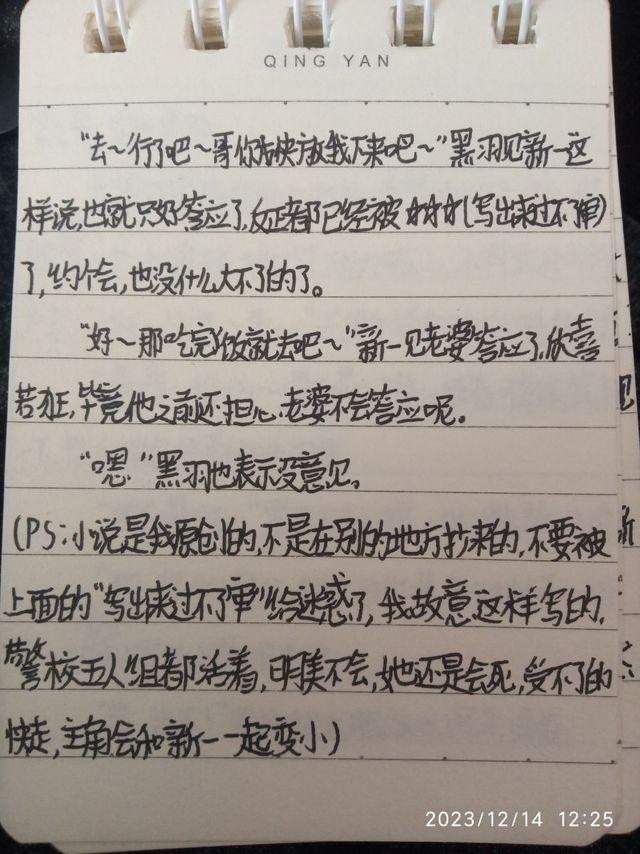 QING YAN
"去~行了吧~哥你快放我下来吧~"黑羽见新一这
样说,也就只好答应了,反正都已经被 (写出来过不了审)
了,约个会,也没什么大不了的了。
"好~那吃完饭就去吧~"新一见老婆答应了,欣喜
若狂,毕竟他之前还担心老婆不会答应呢。
"嗯"黑羽也表示没意见。
(PS:小说是我原创的,不是在别的地方抄来的,不要被
上面的"写出来过不了审"给迷惑了,我故意这样写的,
警校五人组都活着,明美不会,她还是会死,受不了的
快走,主角会和新一一起变小)
2023/12/14 12:25